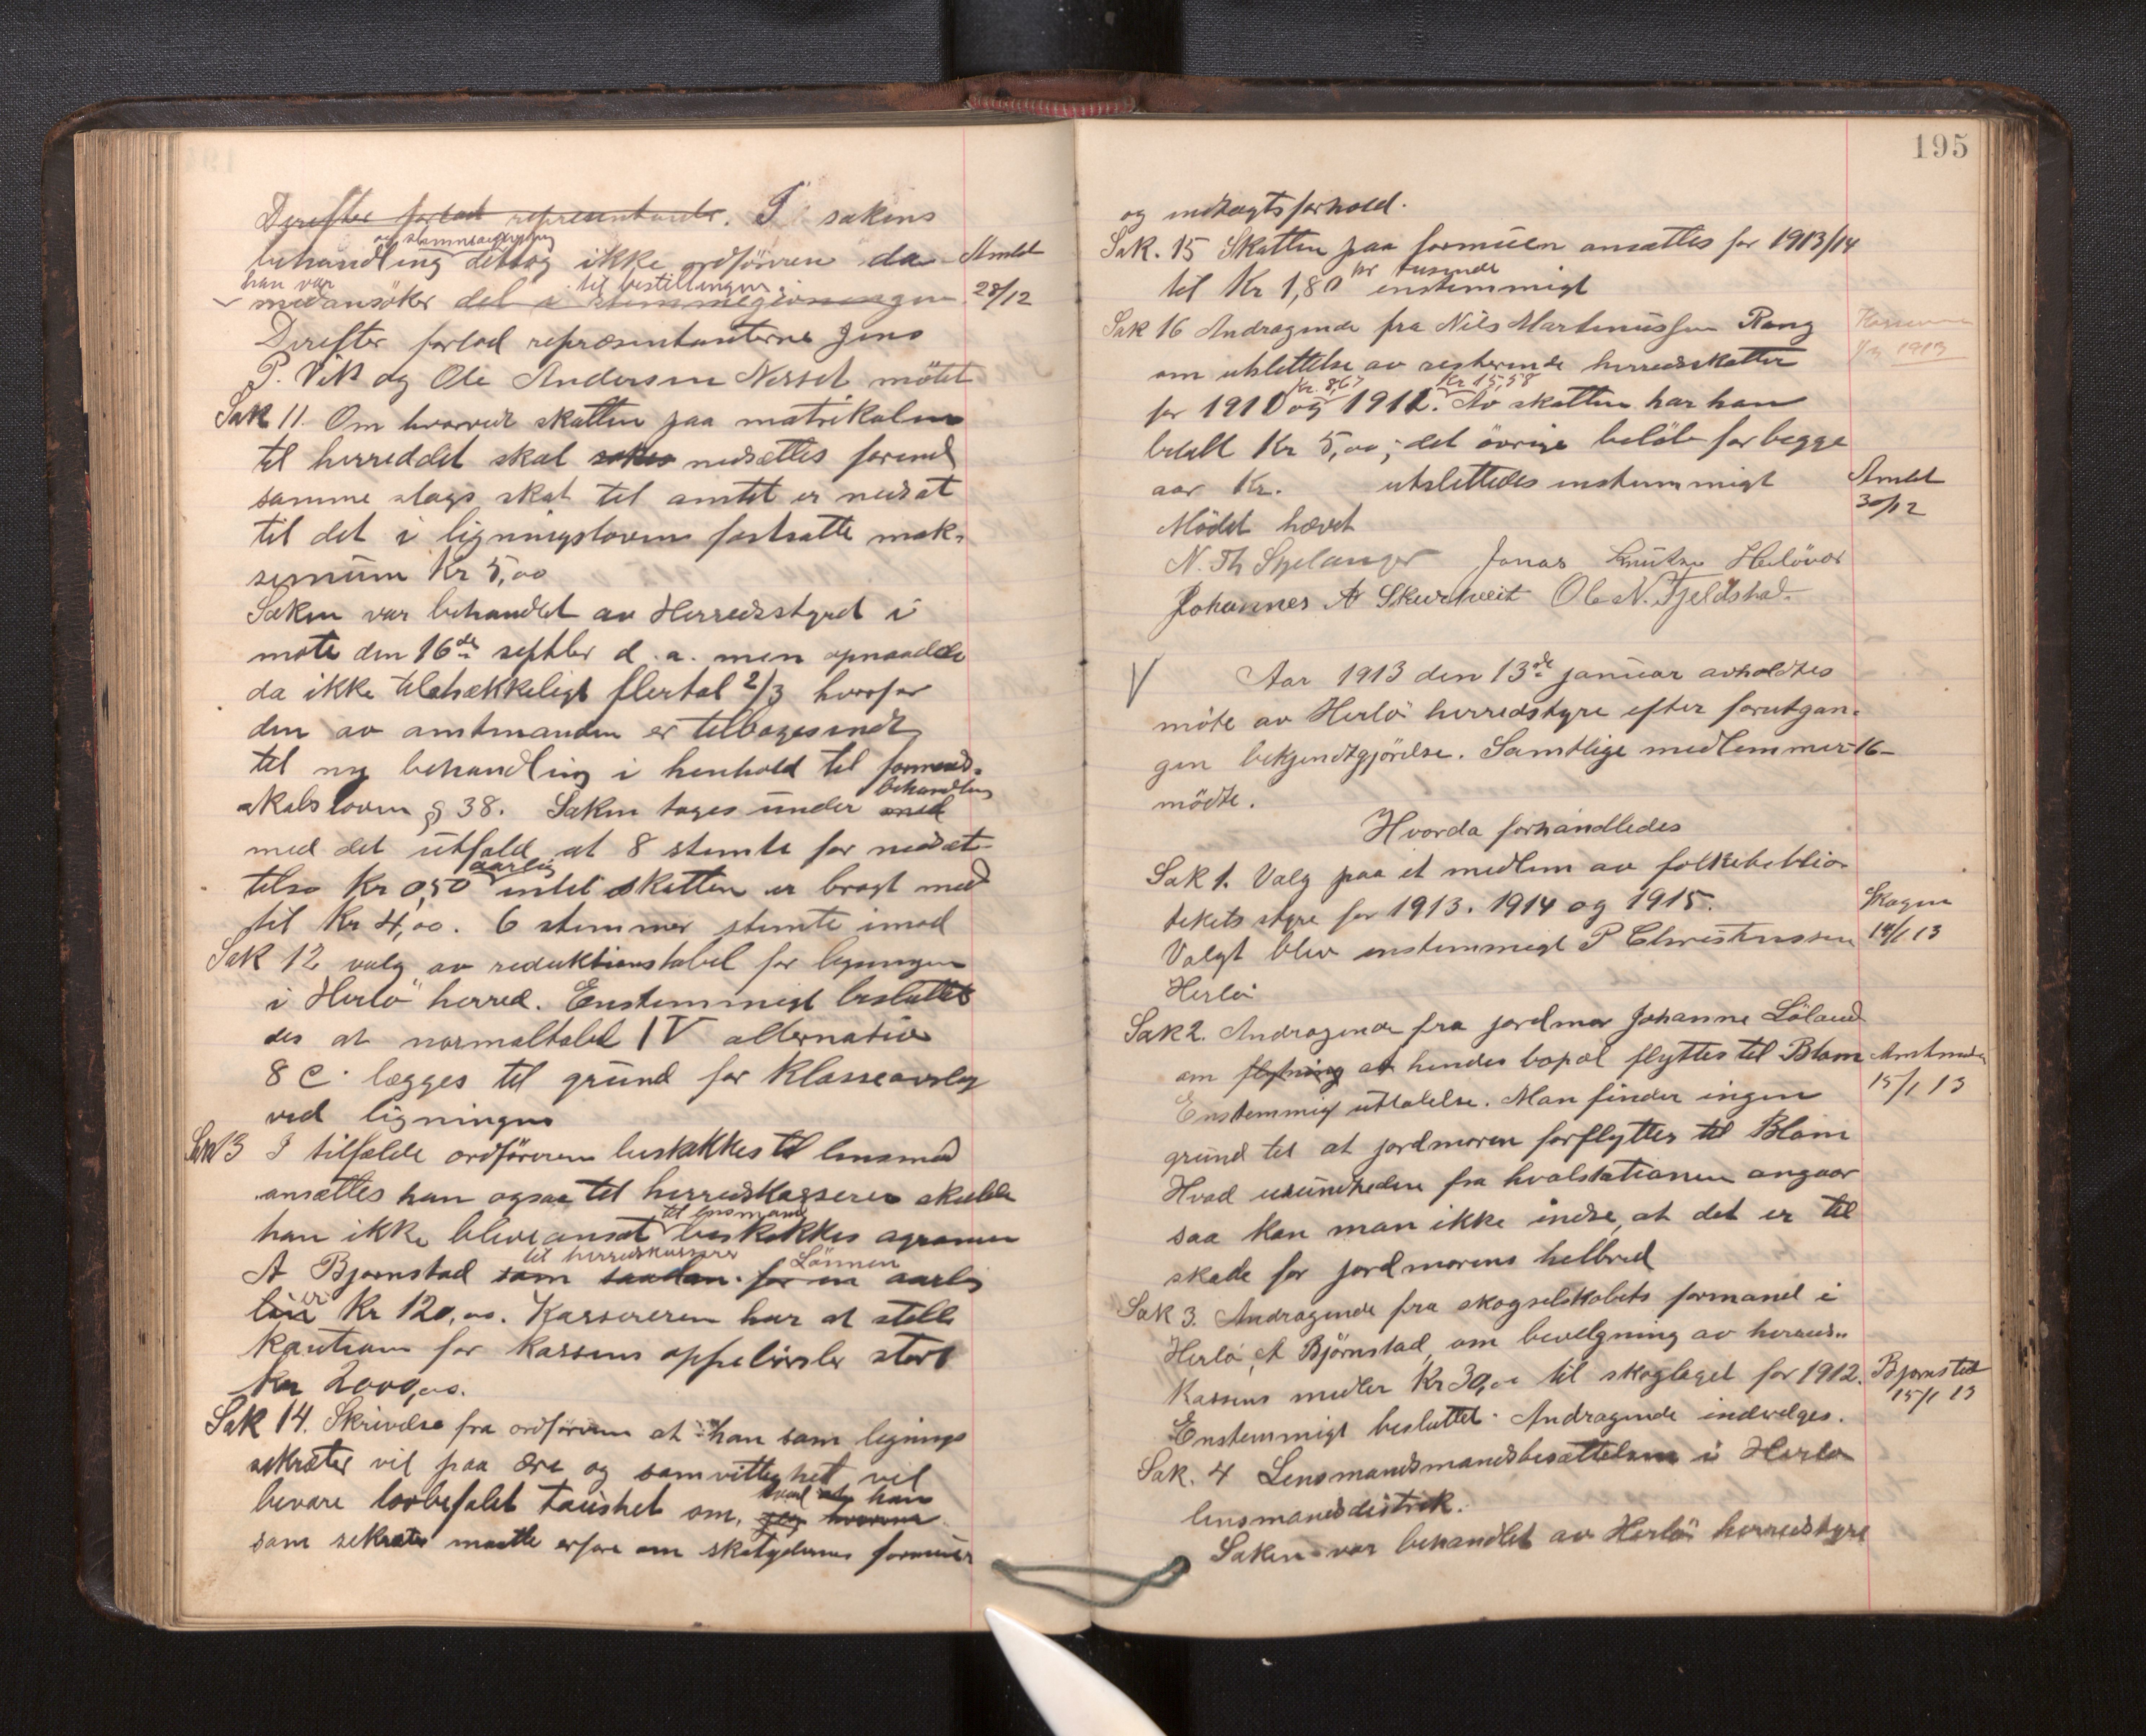 Derefter forlod repræsentante. I sakens
og stemmegivning
behandling deltog ikke ordföreren da
Amtet
28/12
han var til bestillingen.
medansöker del i stemmegivningen
Derefter forlod repræsentanterne Jens
P. Vik og Ole Andersen Nesset mötet
Sak 11. Om hvorvidt skatten paa matrikulen
til herreddet skal nedsættes forend
samme slags skat til amtet er nedsat
til det i ligningsloven fastsatte mak-
simum Kr 5,00
Saken var behandlet av Herredsstyret i
möte den 16de septbr d. a. men opnaadde
da ikke tilstrækkeligt flertal 2/3 hvorfor
den av amtmanden er tilbagesendt
til ny behandling i henhold til formand-
skabsloven § 38. Saken tages under med
behandling
med det utfald at 8 stemte for nedsæt-
telse Kr 0,50 aarlig indtil skatten er bragt ned
til Kr 4,00. 6 stemmer stemte imod
Sak 12 valg av reduktionstabel for ligningen
i Herlö herred. Enstemmigt beslutte-
des at normaltabel IV alternativ
8 C. lægges til grund for Klasseavslag
ved ligningen
Sak 13 I tilfælde ordföreren beskikkes til lensmand
ansættes han ogsaa til herredskasserer skulde
til lensmand
han ikke blive ansat beskikkes agronom
til herredskasserer Lönnen
A Bjørnstad som saadan. for en aarlig
er
lön Kr 120,00. Kassereren har at stille
kaution for kassens oppebörsler stort
Kr 2000,00.
Sak 14. Skrivelse fra ordföreren at han som lignings
sekretær vil paa ære og samvittighet vil
hvad at han
bevare lovbefalet taushet om, jeg
som sekretær maatte erfare om skatydernes formues
195
og indtægtsforhold.
Sak. 15 Skatten paa formuen ansættes for 1913/14
pr tusende
til Kr 1,80 enstemmigt
Sak 16 Andragende fra Nils Martinussen Rong
Kasseren
1913
om utslettelse av resterende herredsskatter
Kr. 8,67 Kr 15,58
for 1910 og 1911. Av skatten har han
betalt Kr 5,00; det övrige belöb for begge
aar Kr. utslettedes enstemmigt
Amtet
30/12
Mödet hævet
N. Th Sjelanger Jonas Knutsen Herlövær
Johannes A Skurtveit Ole N. Fjeldstad.
V Aar 1913 den 13de januar avholdtes
möte av Herlö herredstyre efter forutgan-
gen bekjendtgjörelse. Samtlige medlemmer -16-
mödte.
Hvorda forhandledes
Sak 1. Valg paa et medlem av folkebiblio-
tekets styre for 1913. 1914 og 1915.
Skogen
14/1 13
Valgt blev enstemmigt P Christenssen
Herlö
Sak 2. Andragende fra jordmor Johanne Löland
om flytning at hendes bopæl flyttes til Blom
Amtmanden
15/1 13
Enstemmig uttalelse. Man finder ingen
grund til at jordmoren forflyttes til Blom
Hvad usundheden fra hvalstationen angaar
saa kan man ikke indse, at det er til
skade for jordmorens helbred
Sak 3. Andragende fra skogselskabets formand i
Herlö, A Björnstad, om bevilgning av herreds-
kassens midler Kr 30,00 til skoglaget for 1912.
Bjørnstad
15/1 13
Enstemmigt besluttet. Andragende indvilges.
Sak. 4 Lensmandsmandsbesættelsen i Herlö
lensmandsdistrik.
Saken var behandlet av Herlö herredstyre